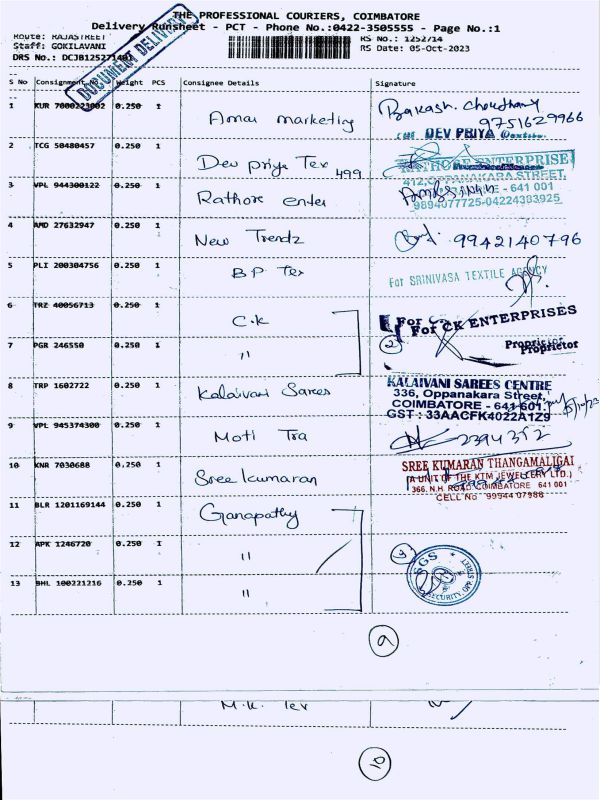 THE PROFESSIONAL COURIERS, COIMBATORE
Delivery Runsheet - PCT - Phone No.:0422-3505555 - Page No.:1
Route: RAJASTREET RS No.: 1252714
Staff: GOKILAVANI RS Date: 05-Oct-2023
DRS No.: DCJB125271401
DOCUMENT DELIVERY
S No Consignment No. Weight PCS Consignee Details Signature
1 KUR 7000223002 0.250 1 Amar marketing Prakash. Choudhary
9751629966
DEV PRIYA
2 TCG 50480457 0.250 1 Dev priya Tex 499
RATHORE ENTERPRISE
412, OPPANAKARA STREET,
3 VPL 944300122 0.250 1 Rathore enter
- 641 001
9894077725-04224383925
4 AMD 27632947 0.250 1 New Trendz 9942140796
5 PLI 200304756 0.250 1 BP Tex For SRINIVASA TEXTILE AGENCY
6 TRZ 40056713 0.250 1 C.k For CK ENTERPRISES
7 PGR 246550 0.250 1 " 2 Proprietor
Proprietor
8 TRP 1602722 0.250 1 Kalaivani Sarees KALAIVANI SAREES CENTRE
336, Oppanakara Street,
COIMBATORE - 641 601.
GST : 33AACFK4022A1Z9
9 VPL 945374300 0.250 1 Moti Tra 2394352
10 KNR 7030688 0.250 1 Sree kumaran SREE KUMARAN THANGAMALIGAI
(A UNIT OF THE KTM JEWELLERY LTD.)
366, N.H. ROAD, COIMBATORE 641 001
CELL No 99944 07988
11 BLR 1201169144 0.250 1 Ganapathy
12 APK 1246720 0.250 1 " 3 SGS
13 BHL 100221216 0.250 1 " SECURITY, OPP. STREET
9
M.K. Tex
10